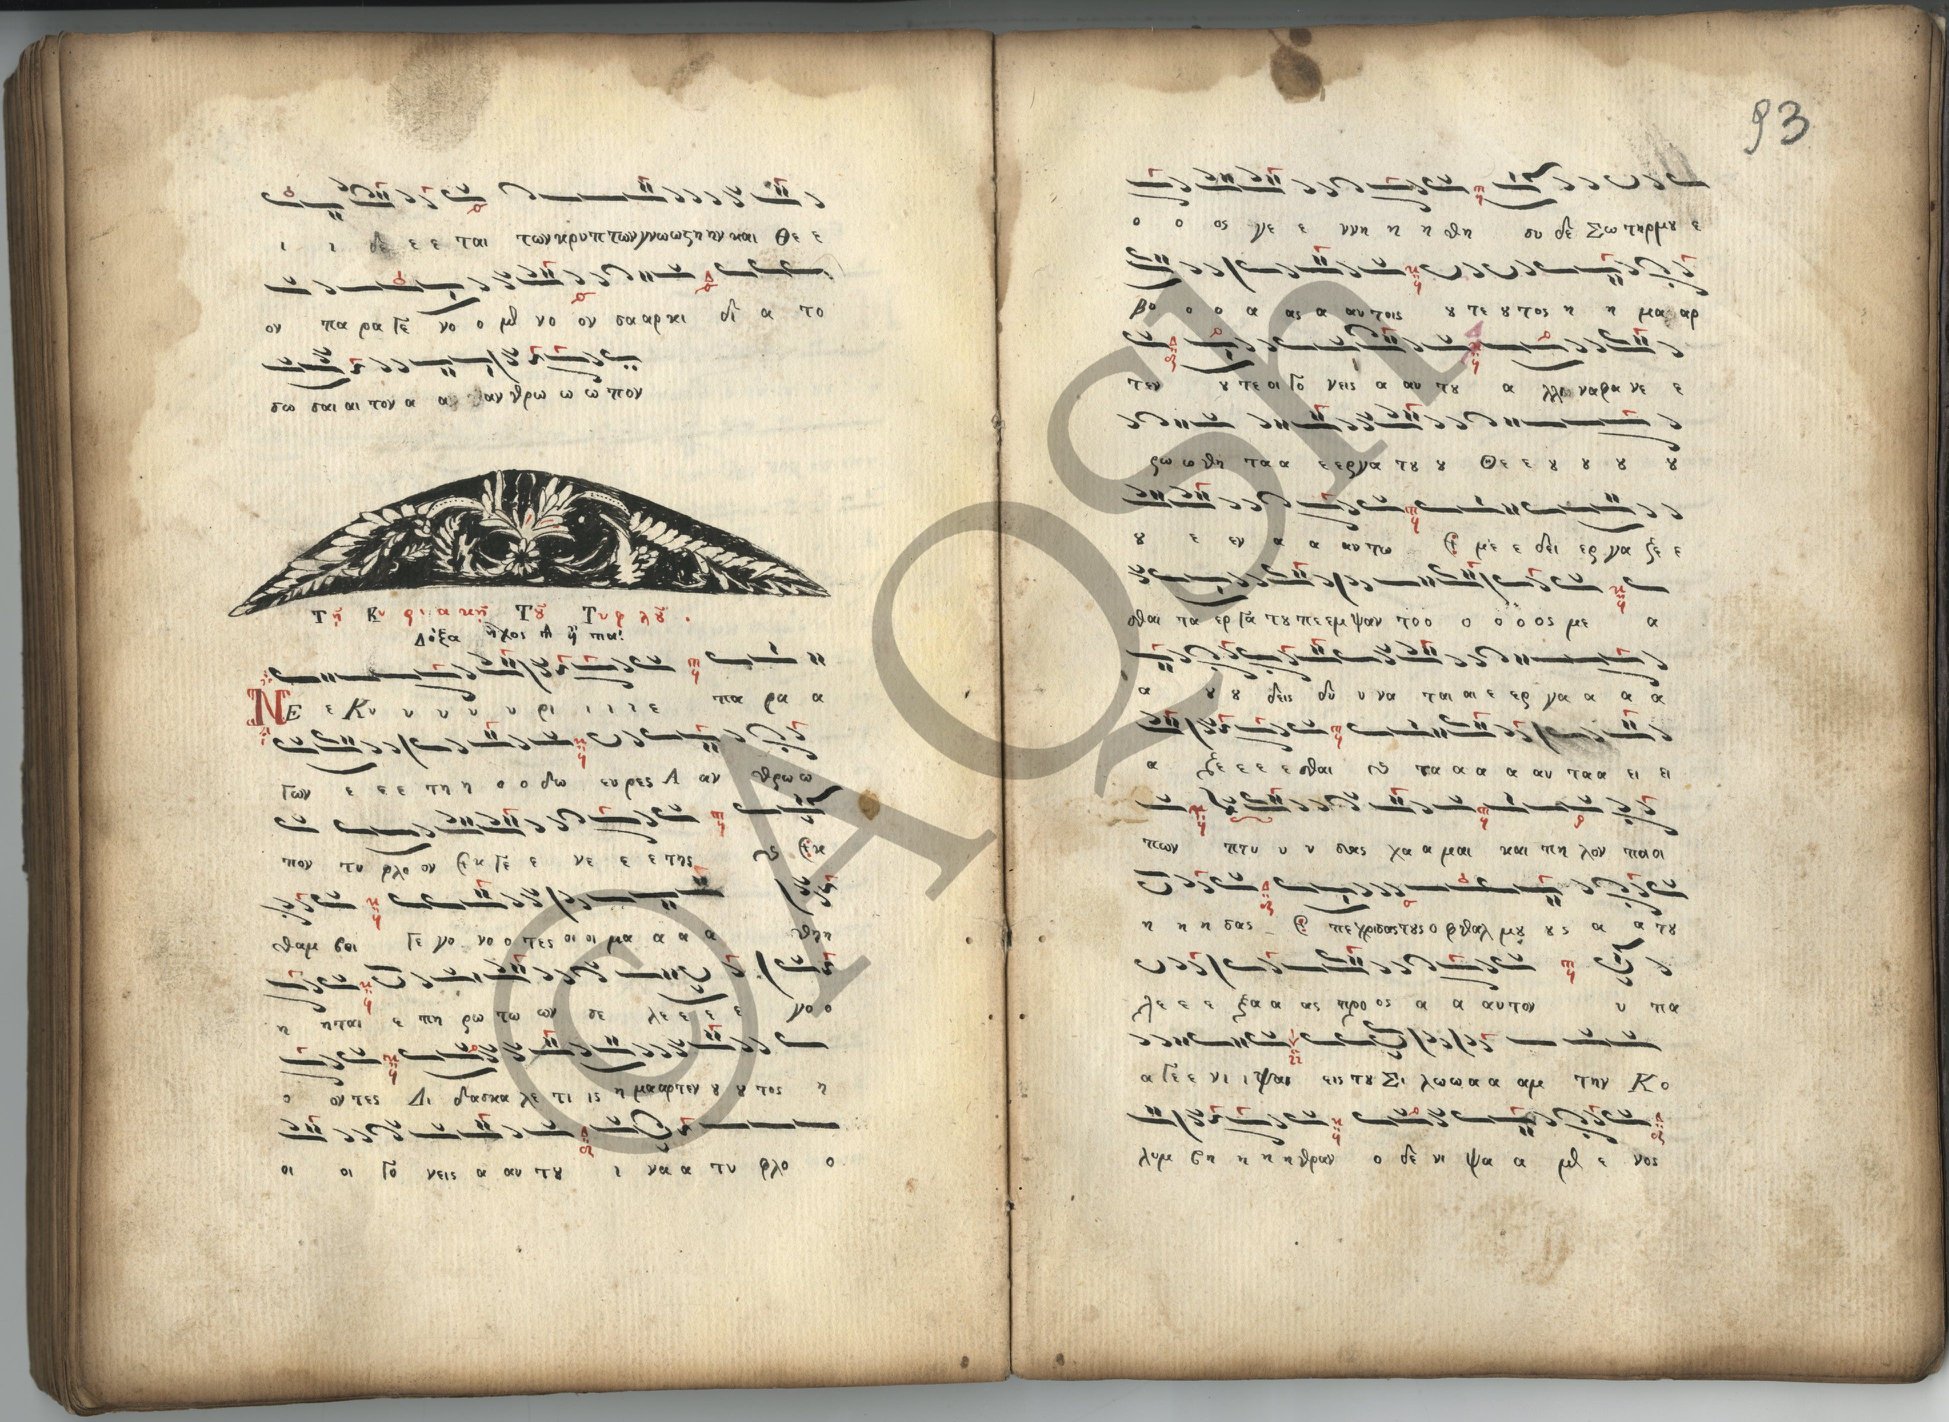 ι ι δε ε ε ται των κρυπτων γνω ω ςη ην και Θε ε
ον πα ρα γε νο ο με νο ον σα αρ κι δι α το
σω σαι αι τον α α αν θρω ω ω πον
Τῇ Κυριακῇ Τȣ̃ Τυφλȣ̃.
Δόξα ἦχος πλ δ πα:
ΝΕ ε Κυ υ υ υ υ ρι ι ι ι ε πα ρα α
γων ε ε ε τη η ο ο δω ευρες Α αν θρω ω
πον τυ φλο ον εκ γε ε νε ε ε της ϗ εκ
θαμ βοι γε νο νο ο τες οι οι μα α α α θη
η ηται ε πη ρω τω ων σε λε ε ε ε γο ο
ο οντες Δι δασκα λε τι ις η μααρτεν ȣ ȣ τος η
οι οι γο νεις α αυ τȣ ι να α τυ φλο ο
93
ο ο ος γε ε ννη η η η θη συ δε Σωτηρ μȣ ε
βο ο ο α ας α αυτοις ȣ τε ȣτος η η μα αρ
τεν ȣ τε οι γο νεις α αυ τȣ α λλ ινα φα νε ε
ρω ω θη τα α ε εργα τȣ ȣ Θε ε ȣ ȣ ȣ ȣ
ȣ ε εν α α αυτω ε με ε δει εργα ζε ε
σθαι τα εργα τȣ πε εμ ψαν το ο ο ο ο ος με α
α ȣ ȣ δεις δυ υ να ται αι ε εργα α α α
α ζε ε ε ε σθαι ϗ τα α α α α αυ τα α ει ει
πων πτυ υ υ σας χα α μαι και πη λον ποι οι
η η η σας ε πε χρισας τȣς ο φθαλ μȣ ȣς α α τȣ
λε ε ε ξα α ας προ ος α α αυτον υ πα
α γε ε νι ι ψαι εις τȣ Σι λω ω α α αμ την Κο
λυμ βη η η η θραν ο δε νι ψα α με ε νος